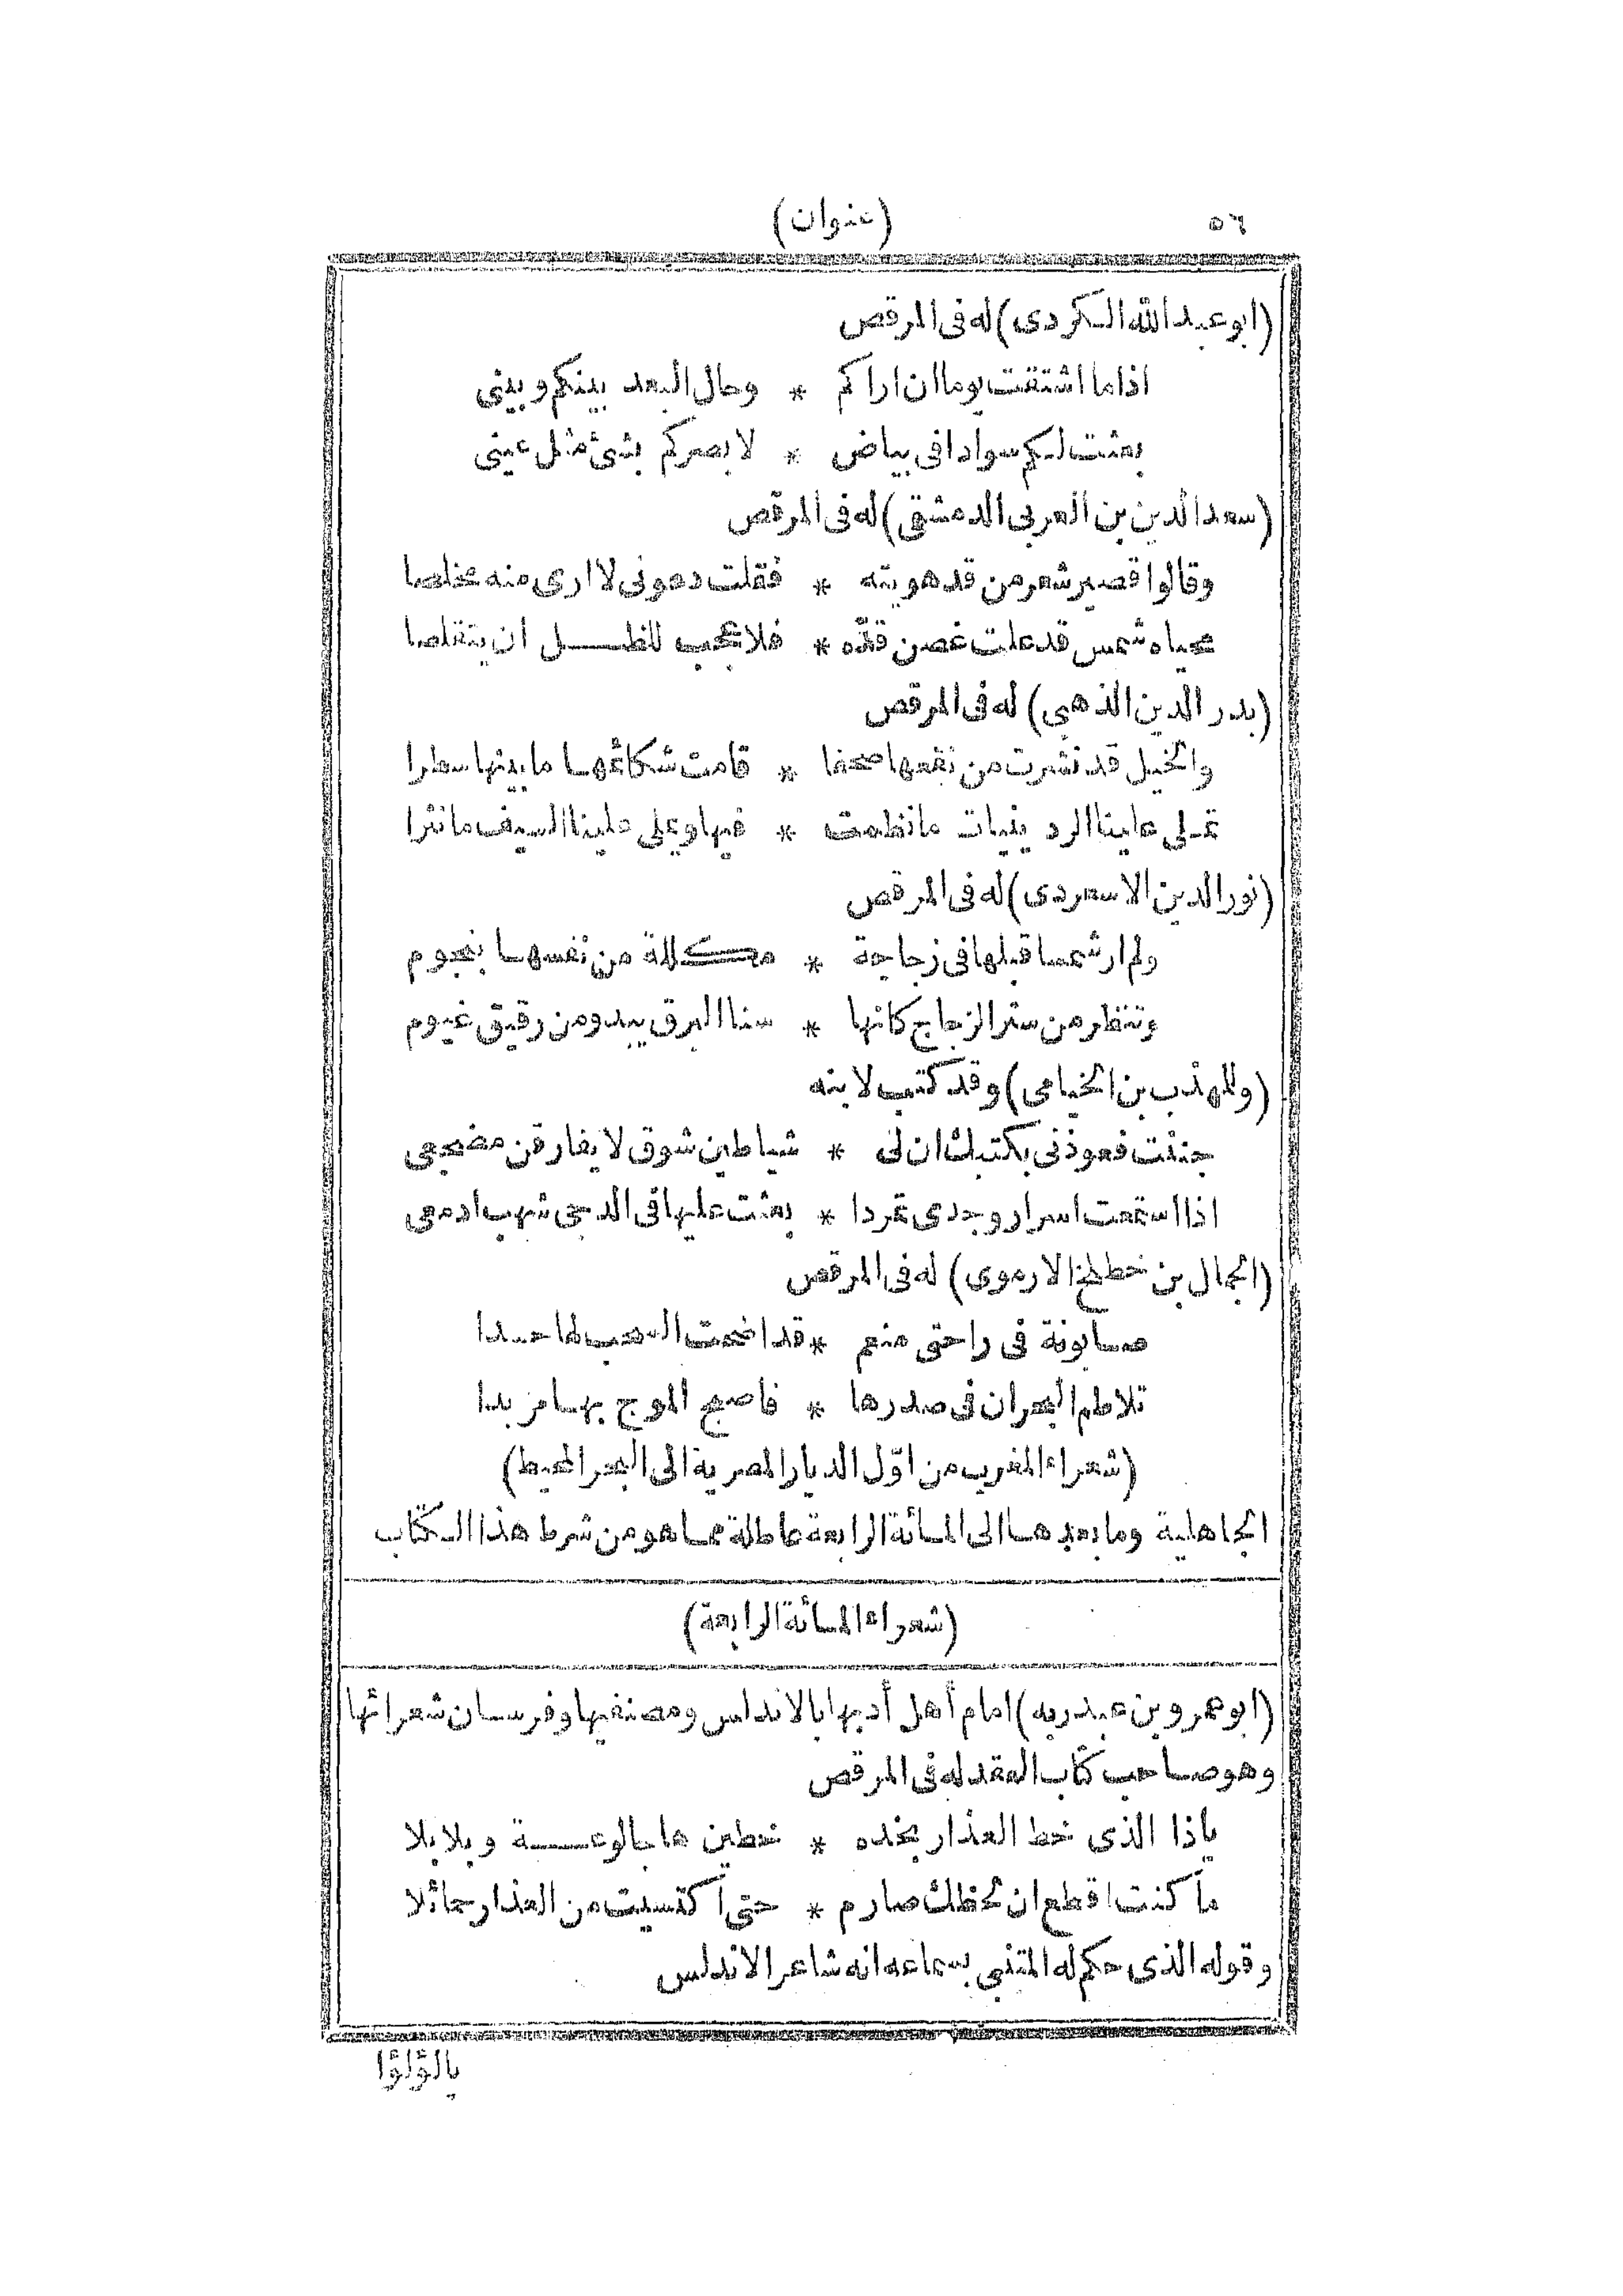 ٥٦ (عنوان)
(ابو عبد الله الكردى) له فى المرقص
اذا ما اشتقت يوما ان اراكم * وحال البعد بينكم وبينى
بعثت لكم سوادا فى بياض * لابصركم بشئ مثل عينى
(سعد الدين بن العربى الدمشقى) له فى المرقص
وقالوا قصير شعر من قد هويته * فقلت دعونى لا ارى منه مخلصا
محياه شمس قد علت غصن قدّه * فلا عجب للظل ان يتقلصا
(بدر الدين الذهبى) له فى المرقص
والخيل قد نشرت من نقعها صحفا * قامت شكائمها ما بينها سطرا
تملى علينا الردينيات ما نظمت * فيها ويملى علينا السيف ما نثرا
(نور الدين الاسعردى) له فى المرقص
ولم ار شمسا قبلها فى زجاجة * مكللة من نفسها بنجوم
وتنظر من ستر الزجاج كانها * سنا البرق يبدو من رقيق غيوم
(وللمهذب بن الخيامى) وقد كتب لابنه
جننت فعوذنى بكتبك ان لى * شياطين شوق لا يفارقن مضجعى
اذا استمعت اسرار وجدى تمردا * بعثت عليها فى الدجى شهب ادمعى
(الجمال بن خطلخ الارموى) له فى المرقص
صابونة فى راحتى منعم * قد اضحت السحب لها حسدا
تلاطم البحران فى صدرها * فاصبح الموج بها مزبدا
(شعراء المغرب من اوّل الديار المصرية الى البحر المحيط)
الجاهلية وما بعدها الى المائة الرابعة عاطلة مما هو من شرط هذا الكتاب
(شعراء المائة الرابعة)
(ابو عمرو بن عبد ربه) امام أهل أدبها بالاندلس ومصنفيها وفرسان شعرائها
وهو صاحب كتاب العقد له فى المرقص
ياذا الذى خط العذار بخده * خطين هاجا لوعة وبلابلا
ما كنت اقطع ان لحظك صارم * حتى اكتسيت من العذار حمائلا
وقوله الذى حكم له المتنبى بسماعه انه شاعر الاندلس
يالؤلؤا